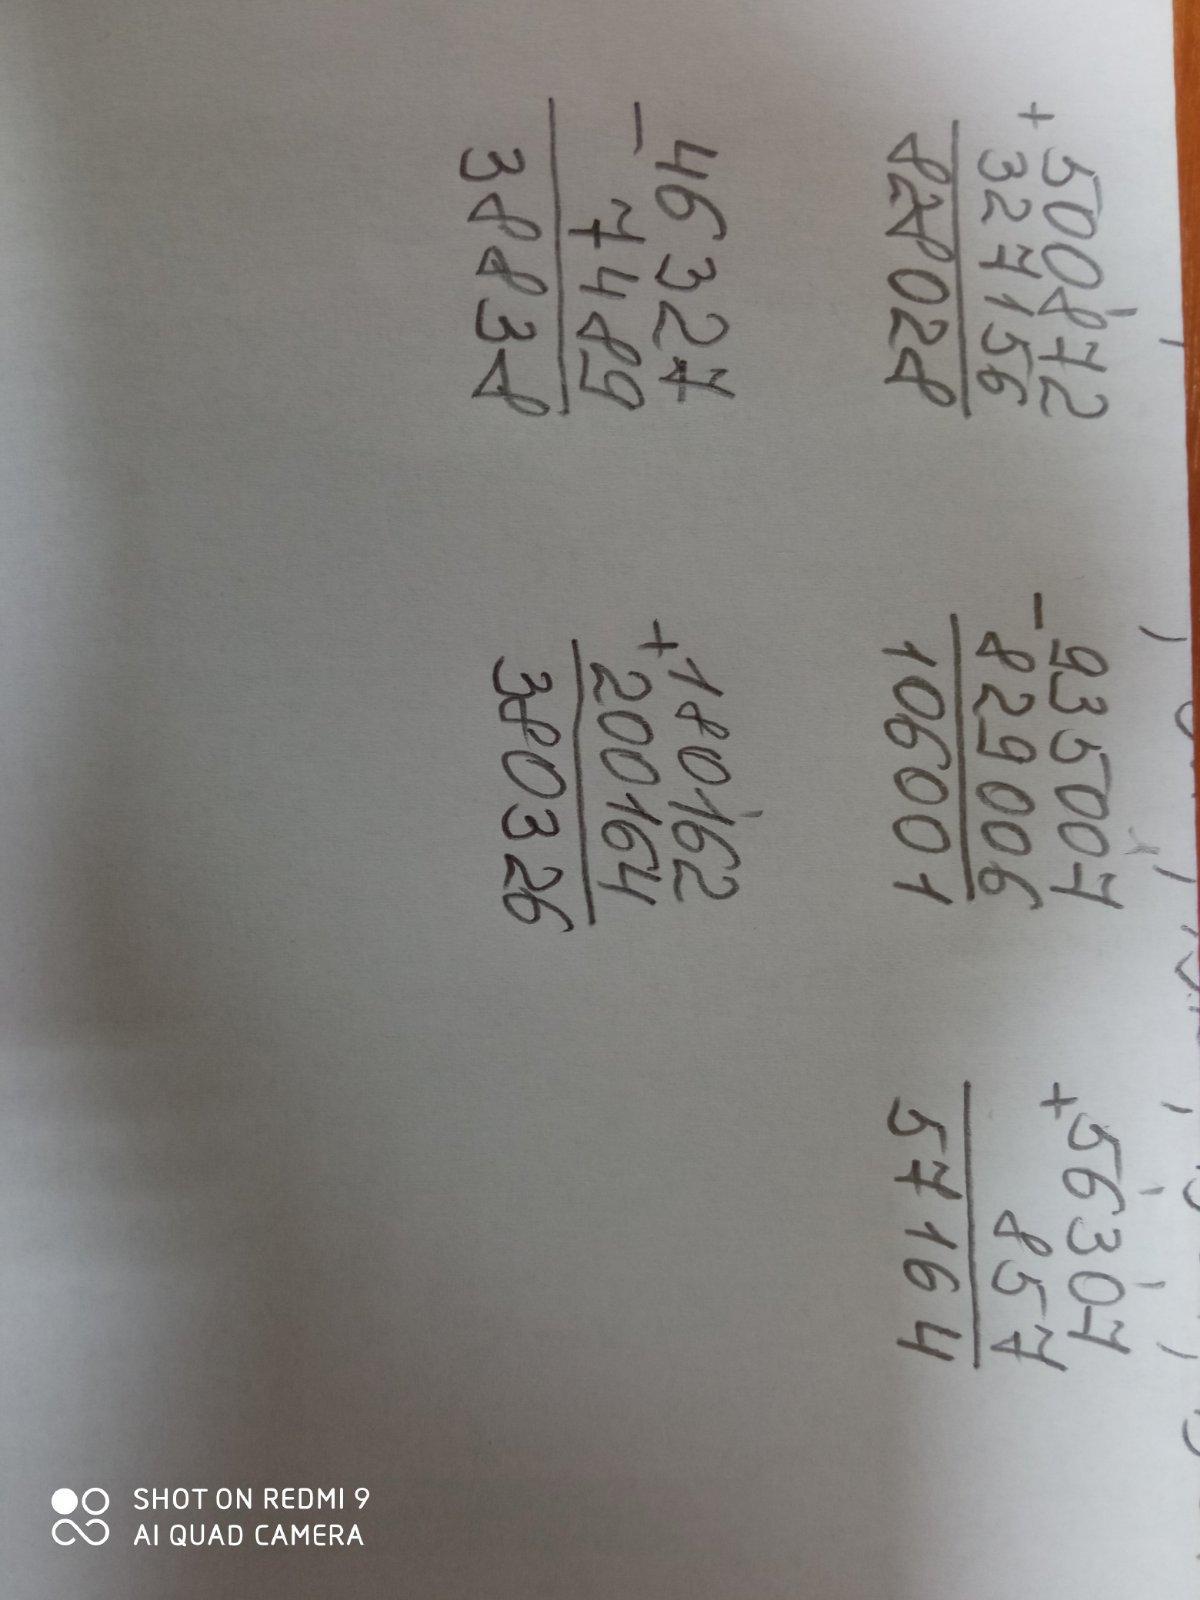 + 500872
327156
828028
- 935007
829006
106001
+ 56307
857
57164
- 46327
7489
38838
+ 180162
200164
380326
SHOT ON REDMI 9
AI QUAD CAMERA